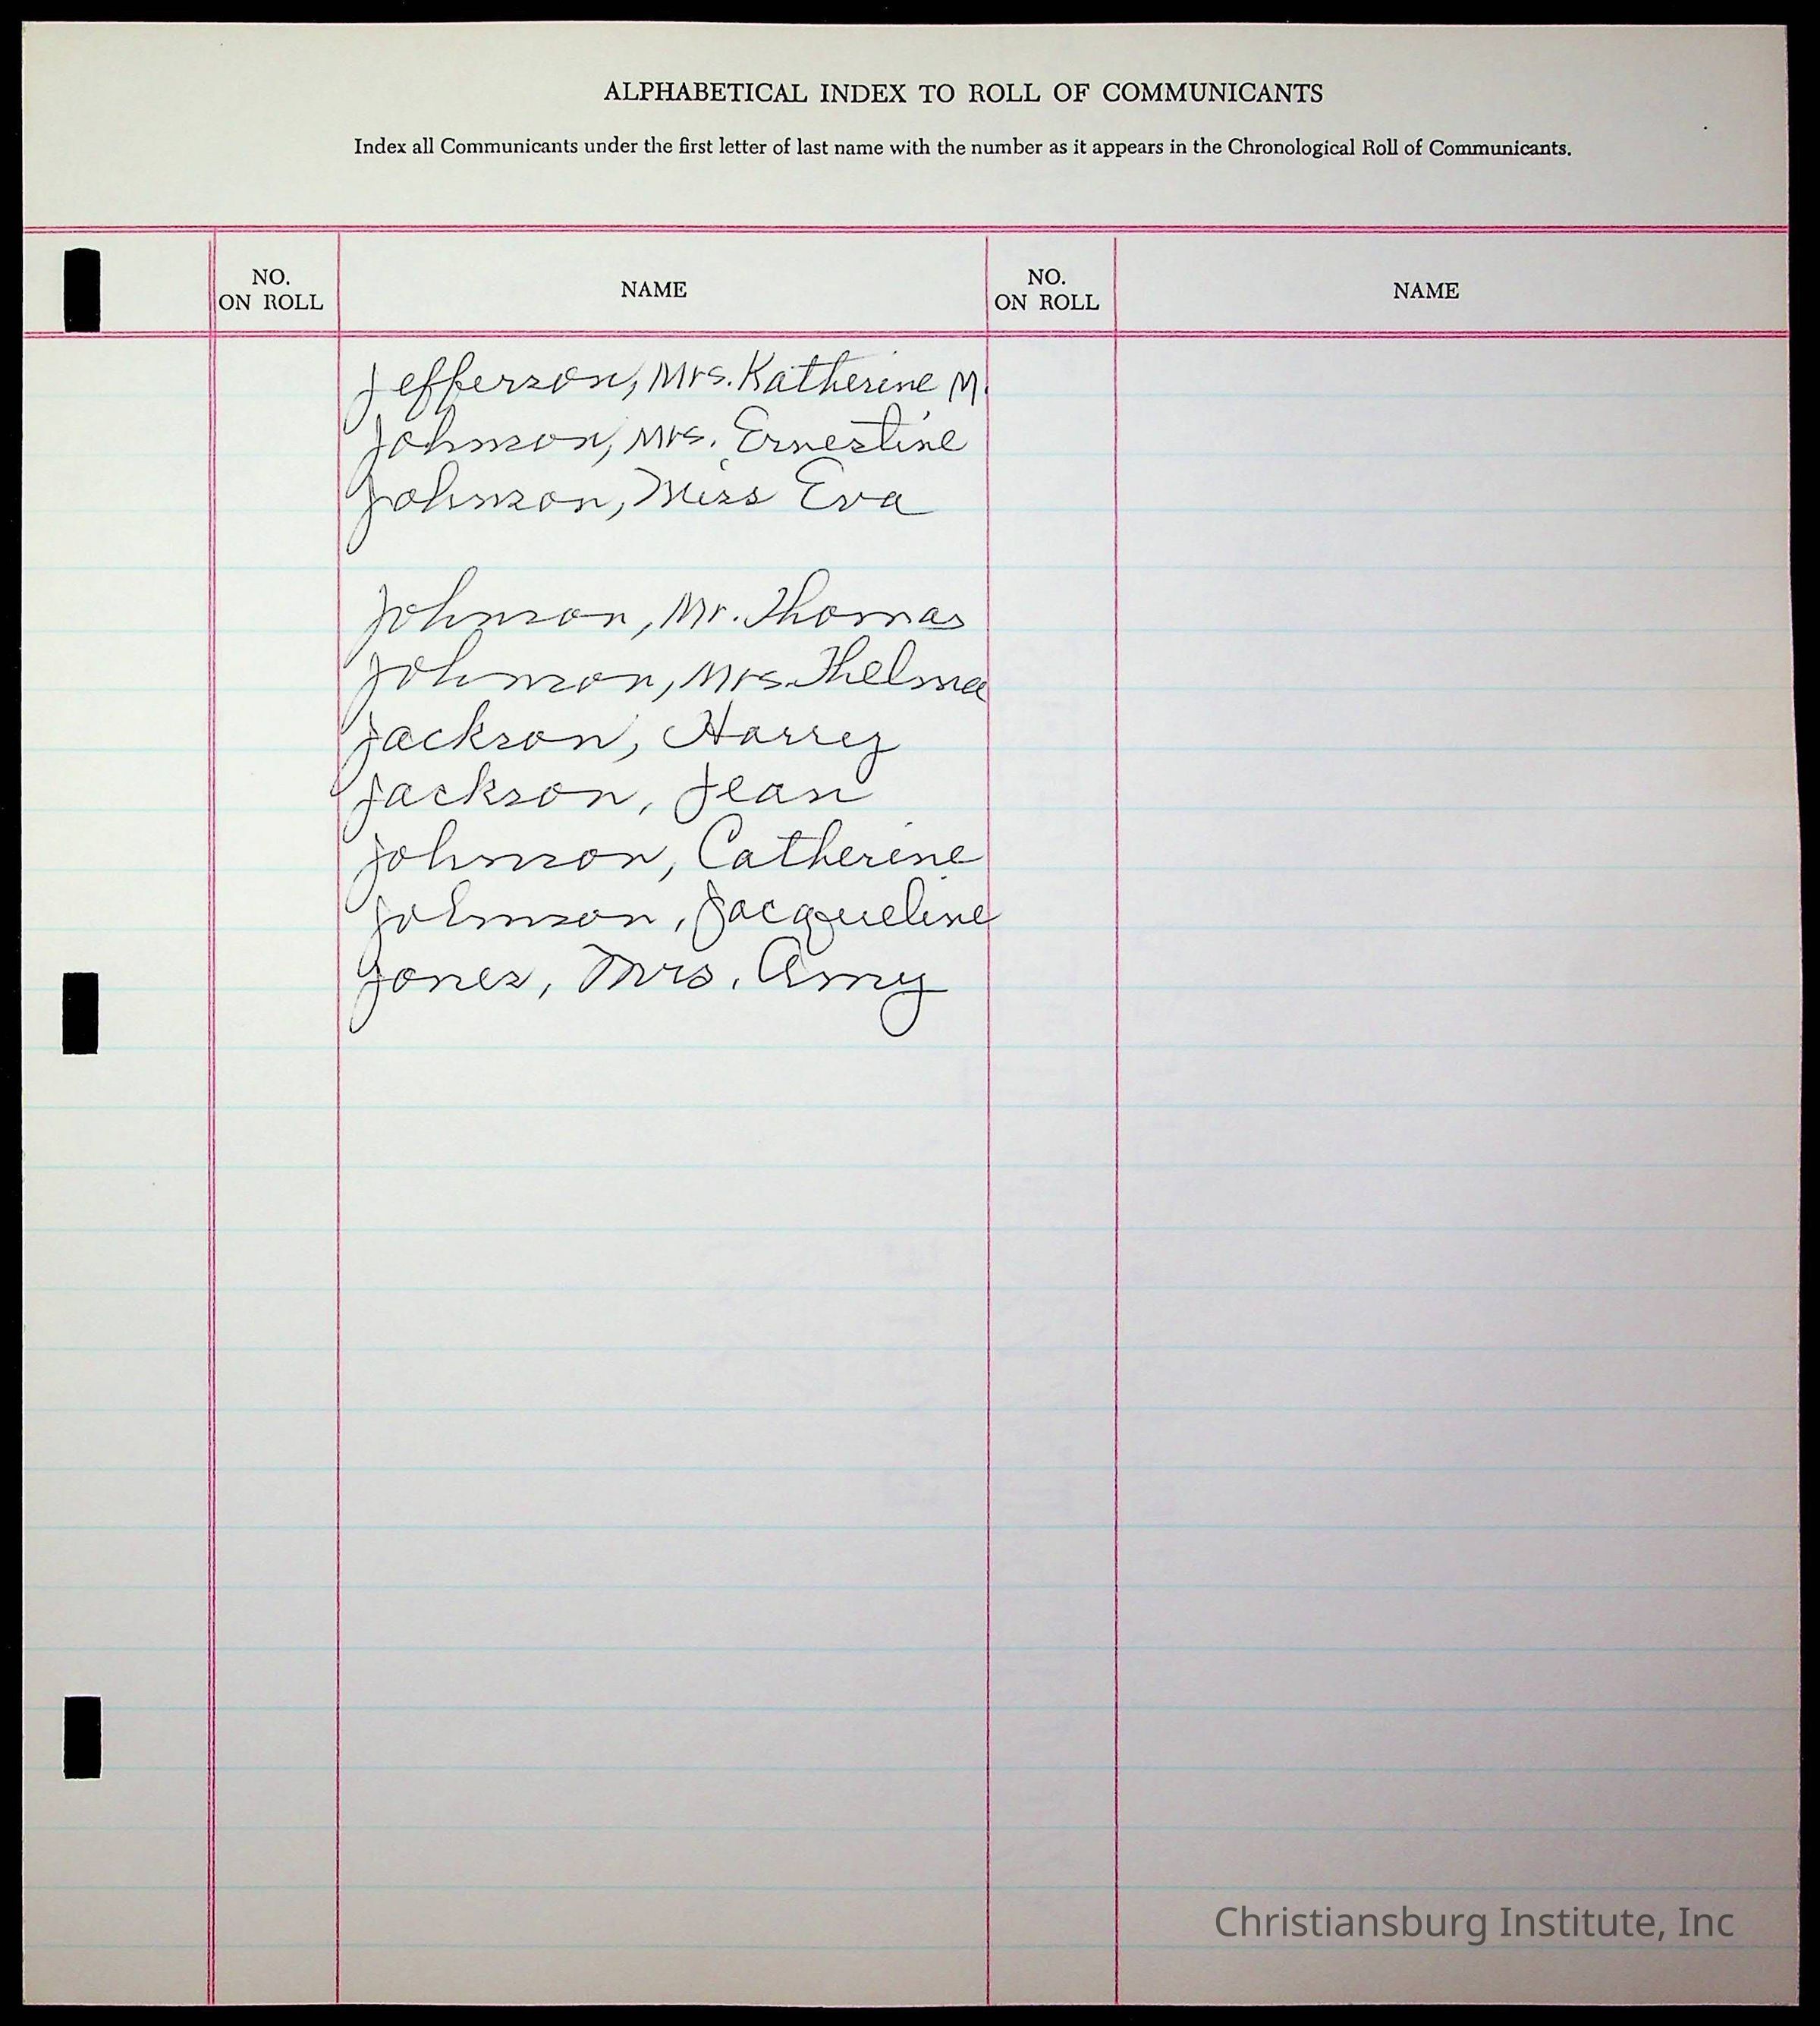 ALPHABETICAL INDEX TO ROLL OF COMMUNICANTS
Index all Communicants under the first letter of last name with the number as it appears in the Chronological Roll of Communicants.
NO. ON ROLL NAME NO. ON ROLL NAME
Jefferson, Mrs. Katherine M.
Johnson, Mrs. Ernestine
Johnson, Miss Eva
Johnson, Mr. Thomas
Johnson, Mrs. Thelma
Jackson, Harrey
Jackson, Jean
Johnson, Catherine
Johnson, Jacqueline
Jones, Mrs. Amy
Christiansburg Institute, Inc